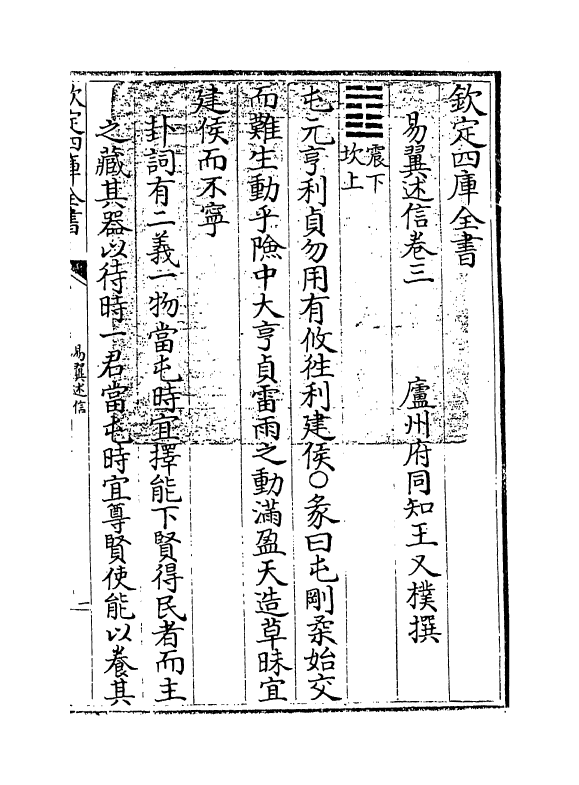 欽定四庫全書
易翼述信卷三　　　廬州府同知王又樸撰
震下
坎上
屯元亨利貞勿用有攸往利建侯○彖曰屯剛柔始交
而難生動乎險中大亨貞雷雨之動滿盈天造草昧宜
建侯而不寧
卦詞有二義一物當屯時宜擇能下賢得民者而主
之藏其器以待時一君當屯時宜尊賢使能以養其
欽定四庫全書
易翼述信